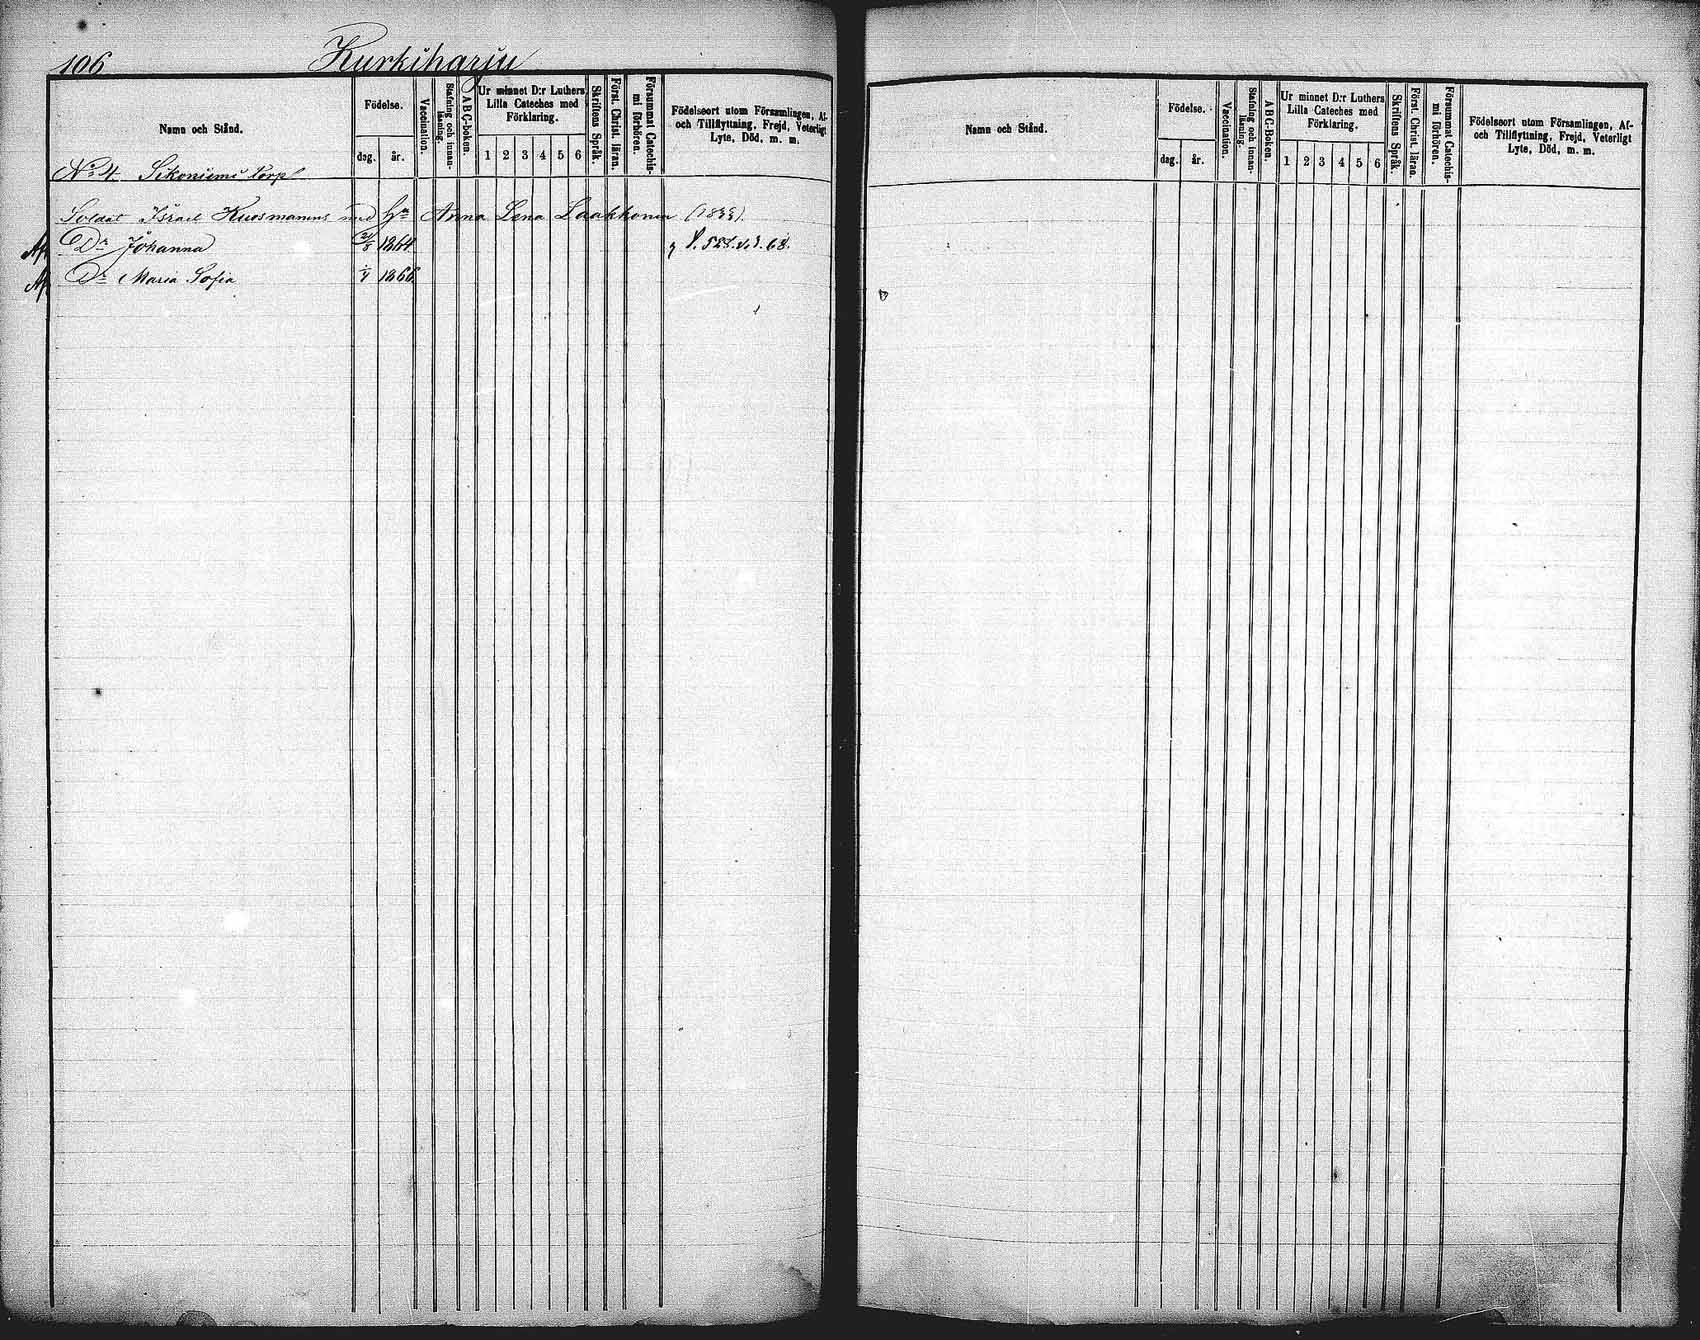 106 Kurkiharju
Namn och Stånd.
Födelse.
dag. år.
Vaccination.
Stafning och innanläsning.
ABC-boken.
Ur minnet D:r Luthers Lilla Cateches med Förklaring.
1 2 3 4 5 6
Skriftens Språk.
Först. Christ. läran.
Försummat Catechismi förhören.
Födelseort utom Församlingen, Af- och Tillflyttning, Frejd, Veterligt Lyte, Död, m. m.
No 4. Sikoniemi torp
Soldat Israel Kuosmanens med Hu Anna Lena Laakkonen
Dr Johanna 1864 P. 528. 68.
Dr Maria Sofia 1866
Namn och Stånd.
Födelse.
dag. år.
Vaccination.
Stafning och innanläsning.
ABC-Boken.
Ur minnet D:r Luthers Lilla Cateches med Förklaring.
1 2 3 4 5 6
Skriftens Språk.
Först. Christ. läran.
Försummat Catechismi förhören.
Födelseort utom Församlingen, Af- och Tillflyttning, Frejd, Veterligt Lyte, Död, m. m.